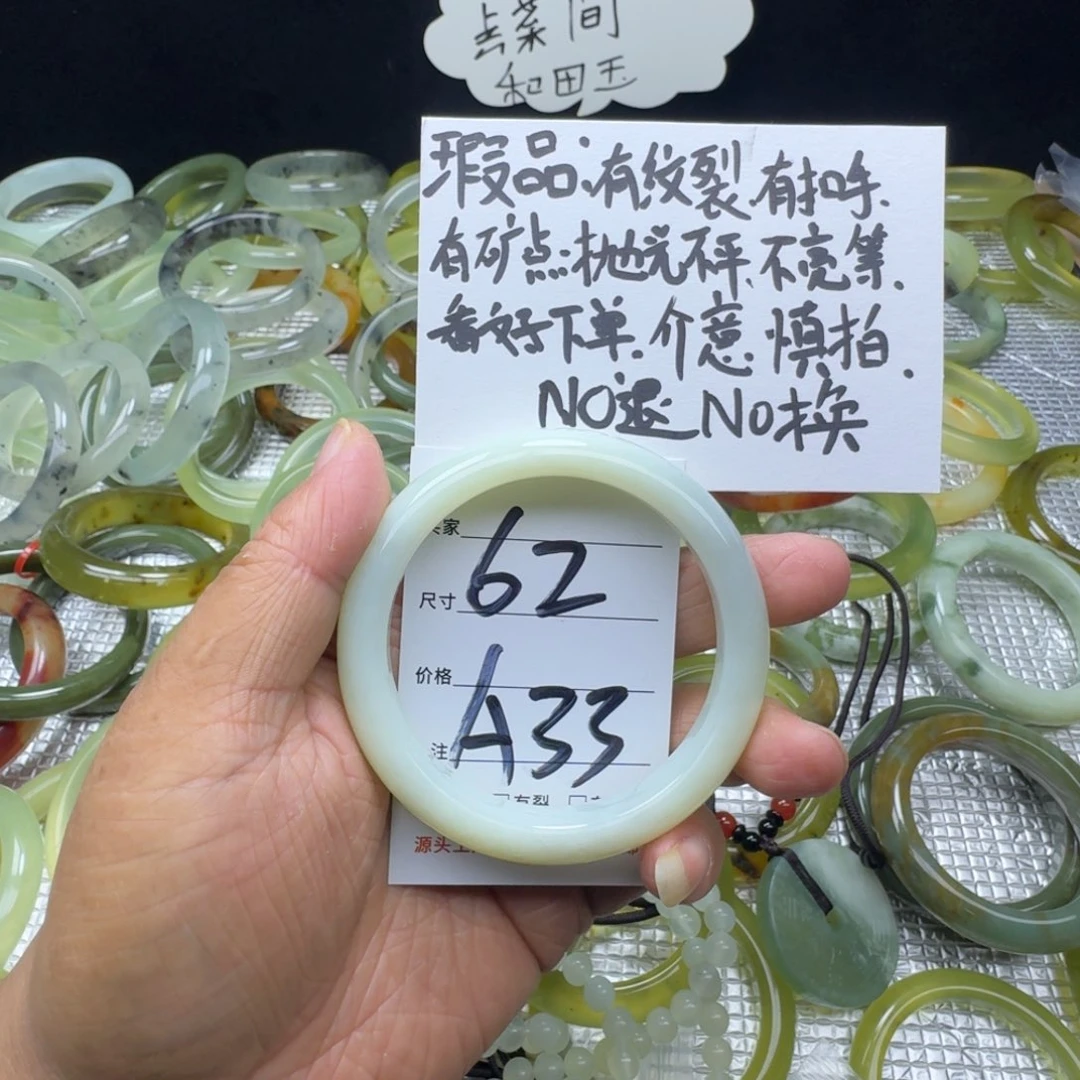 点菜间
和田玉
瑕品:有纹裂.有扣咔.
有矿点:抛光不平.不亮等.
看好下单.介意慎拍.
NO退 NO换
家
尺寸 62
价格
注 A33
有裂
源头